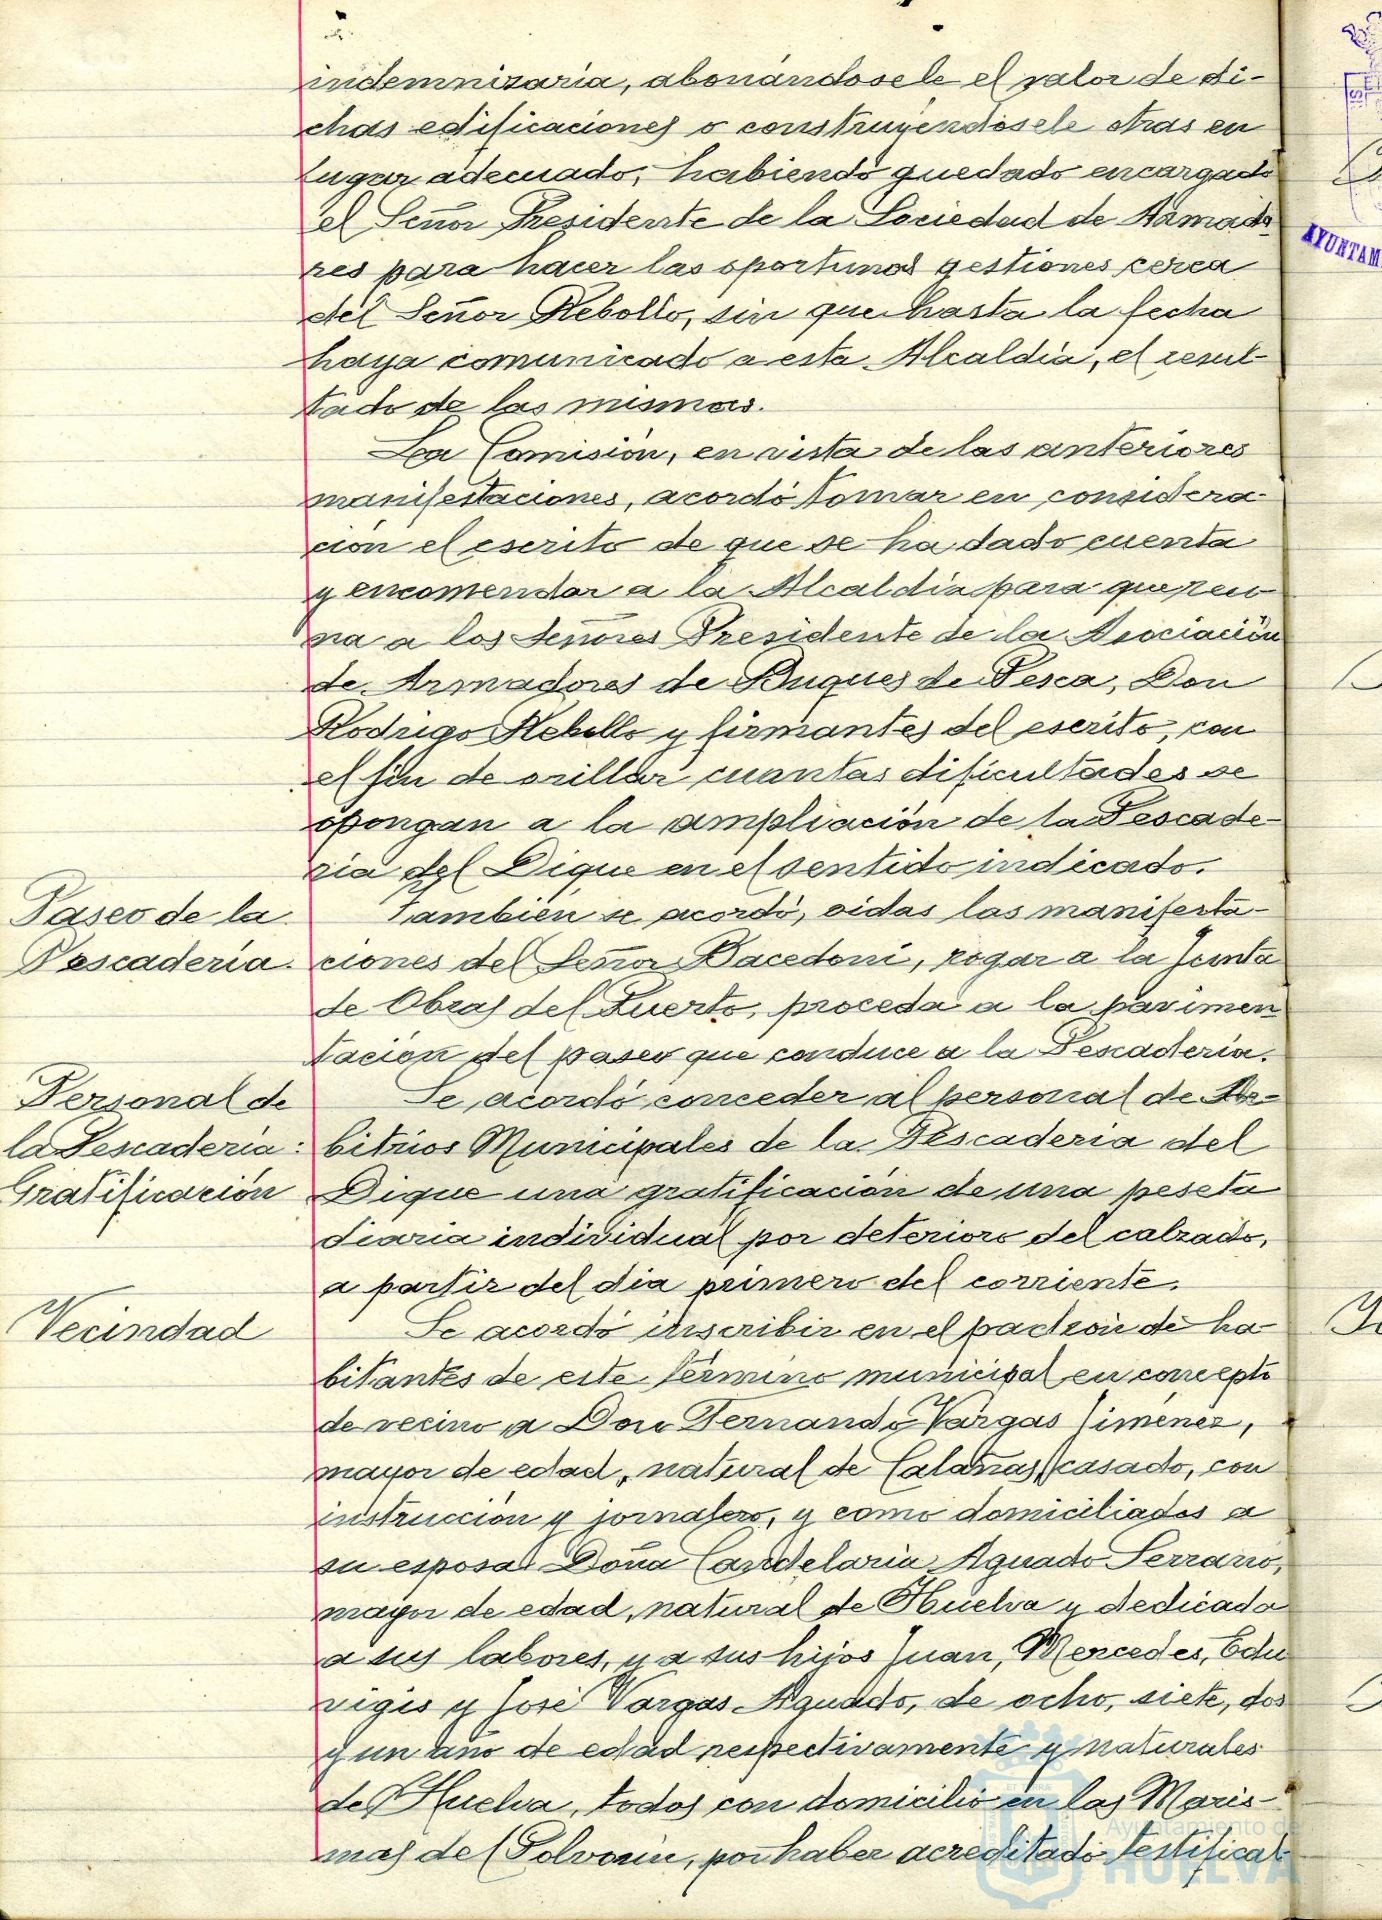 indemnizaria, abonándosele el valor de di-
chas edificaciones o construyéndosele otras en
lugar adecuado, habiendo quedado encargado
el Señor Presidente de la Sociedad de Armado
res para hacer las oportunas gestiones cerca
del Señor Rebollo, sin que hasta la fecha
haya comunicado a esta Alcaldía, el resul-
tado de las mismas.
La Comisión, en vista de las anteriores
manifestaciones, acordó tomar en considera-
ción el escrito de que se ha dado cuenta
y encomendar a la Alcaldía para que reu-
na a los Señores Presidente de la Asociación
de Armadores de Buques de Pesca, Don
Rodrigo Rebollo y firmantes del escrito, con
el fin de orillar cuantas dificultades se
opongan a la ampliación de la Pescade-
ria del Dique en el sentido indicado.
Paseo de la
Pescadería.
También se acordó, oidas las manifesta-
ciones del Señor Bacedoni, rogar a la Junta
de Obras del Puerto, proceda a la pavimen
tación del paseo que conduce a la Pescaderia.
Personal de
la Pescaderia:
Gratificación
Se acordó conceder al personal de Ar-
bitrios Municipales de la Pescaderia del
Dique una gratificación de una peseta
diaria individual por deterioro del calzado,
a partir del dia primero del corriente.
Vecindad
Se acordó inscribir en el padrón de ha-
bitantes de este término municipal en concepto
de vecino a Don Fernando Vargas Jiménez,
mayor de edad, natural de Calañas, casado, con
instrucción y jornalero, y como domiciliados a
su esposa Doña Candelaria Aguado Serrano,
mayor de edad, natural de Huelva y dedicada
a sus labores, y a sus hijos Juan, Mercedes, Edu
vigis y José Vargas Aguado, de ocho, siete, dos
y un año de edad respectivamente y naturales
de Huelva, todos con domicilio en las Maris-
mas del Polvorin, por haber acreditado testifical
AYUNTAM
Ayuntamiento de
HUELVA